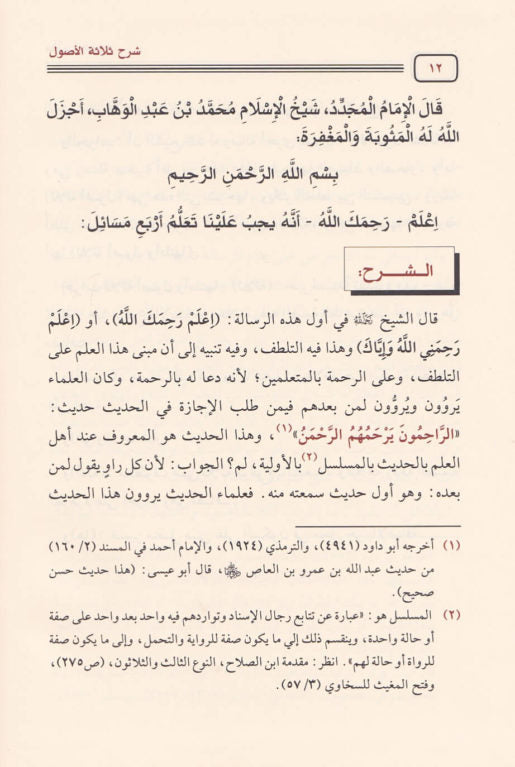 شرح ثلاثة الأصول
١٢
قَالَ الْإِمَامُ الْمُجَدِّدُ، شَيْخُ الْإِسْلَامِ مُحَمَّدُ بْنُ عَبْدِ الْوَهَّابِ، أَجْزَلَ
اللَّهُ لَهُ الْمَثُوبَةَ وَالْمَغْفِرَةَ:
بِسْمِ اللَّهِ الرَّحْمَنِ الرَّحِيمِ
اِعْلَمْ - رَحِمَكَ اللَّهُ - أَنَّهُ يجبُ عَلَيْنَا تَعَلُّمُ أَرْبَعِ مَسَائِلَ:
الـشـــرح:
قال الشيخ رحمه الله في أول هذه الرسالة: (اِعْلَمْ رَحِمَكَ اللَّهُ)، أو (اِعْلَمْ
رَحِمَنِي اللَّهُ وَإِيَّاكَ) وهذا فيه التلطف، وفيه تنبيه إلى أن مبنى هذا العلم على
التلطف، وعلى الرحمة بالمتعلمين؛ لأنه دعا له بالرحمة، وكان العلماء
يَروُون ويُروُّون لمن بعدهم فيمن طلب الإجازة في الحديث حديث:
«الرَّاحِمُونَ يَرْحَمُهُمُ الرَّحْمَنُ»(١)، وهذا الحديث هو المعروف عند أهل
العلم بالحديث بالمسلسل(٢) بالأولية، لم؟ الجواب: لأن كل راوٍ يقول لمن
بعده: وهو أول حديث سمعته منه. فعلماء الحديث يروون هذا الحديث
(١) أخرجه أبو داود (٤٩٤١)، والترمذي (١٩٢٤)، والإمام أحمد في المسند (١٦٠/٢)
من حديث عبد الله بن عمرو بن العاص رضي الله عنهما، قال أبو عيسى: (هذا حديث حسن
صحيح).
(٢) المسلسل هو: «عبارة عن تتابع رجال الإسناد وتواردهم فيه واحد بعد واحد على صفة
أو حالة واحدة، وينقسم ذلك إلي ما يكون صفة للرواية والتحمل، وإلى ما يكون صفة
للرواة أو حالة لهم». انظر: مقدمة ابن الصلاح، النوع الثالث والثلاثون، (ص٢٧٥)،
وفتح المغيث للسخاوي (٥٧/٣).